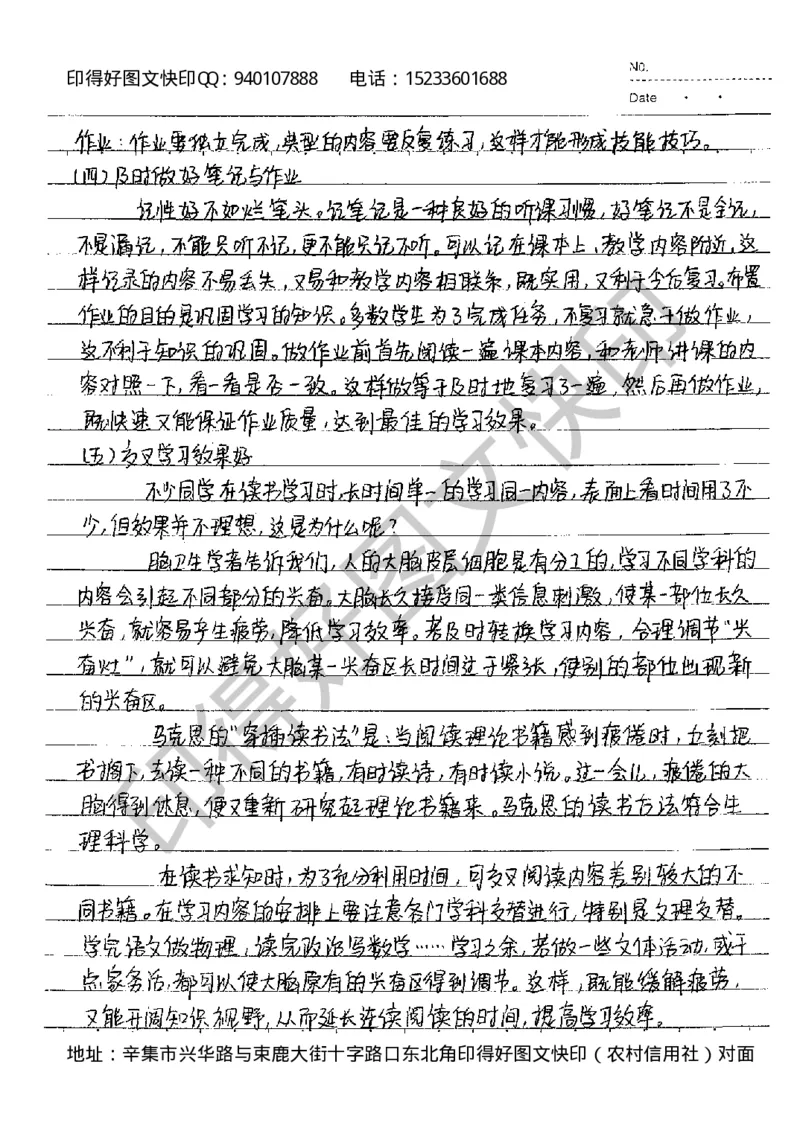 印得好图文快印QQ：940107888 电话：15233601688
No.
Date
作业：作业要独立完成，典型的内容要反复练习，这样才能形成技能技巧。
（四）及时做好笔记与作业
记性好不如烂笔头。记笔记是一种良好的听课习惯，好笔记不是全记，
不是漏记，不能只听不记，更不能只记不听。可以记在课本上、教学内容附近，这
样记录的内容不易丢失，又易和教学内容相联系，既实用，又利于今后复习。布置
作业的目的是巩固学习的知识。多数学生为了完成任务，不复习就急于做作业，
这不利于知识的巩固。做作业前首先阅读一遍课本内容，和老师讲课的内
容对照一下，看一看是否一致。这样做等于及时地复习了一遍，然后再做作业，
既快速又能保证作业质量，达到最佳的学习效果。
（五）交叉学习效果好
不少同学在读书学习时，长时间单一的学习同一内容，表面上看时间用了不
少，但效果并不理想，这是为什么呢？
脑卫生学者告诉我们，人的大脑皮层细胞是有分工的，学习不同学科的
内容会引起不同部分的兴奋。大脑长久接受同一类信息刺激，使某一部位长久
兴奋，就容易产生疲劳，降低学习效率。若及时转换学习内容，合理调节“兴
奋灶”，就可以避免大脑某一兴奋区长时间过于紧张，使别的部位出现新
的兴奋区。
马克思的“穿插读书法”是：当阅读理论书籍感到疲倦时，立刻把
书搁下，去读一种不同的书籍，有时读诗，有时读小说。过一会儿，疲倦的大
脑得到休息，便又重新研究起理论书籍来。马克思的读书方法符合生
理科学。
在读书求知时，为了充分利用时间，可交叉阅读内容差别较大的不
同书籍。在学习内容的安排上要注意各门学科交替进行，特别是文理交替。
学完语文做物理，读完政治写数学……学习之余，若做一些文体活动，或干
点家务活，都可以使大脑原有的兴奋区得到调节。这样，既能缓解疲劳，
又能开阔知识视野，从而延长连读阅读的时间，提高学习效率。
地址：辛集市兴华路与束鹿大街十字路口东北角印得好图文快印（农村信用社）对面
印得好图文快印